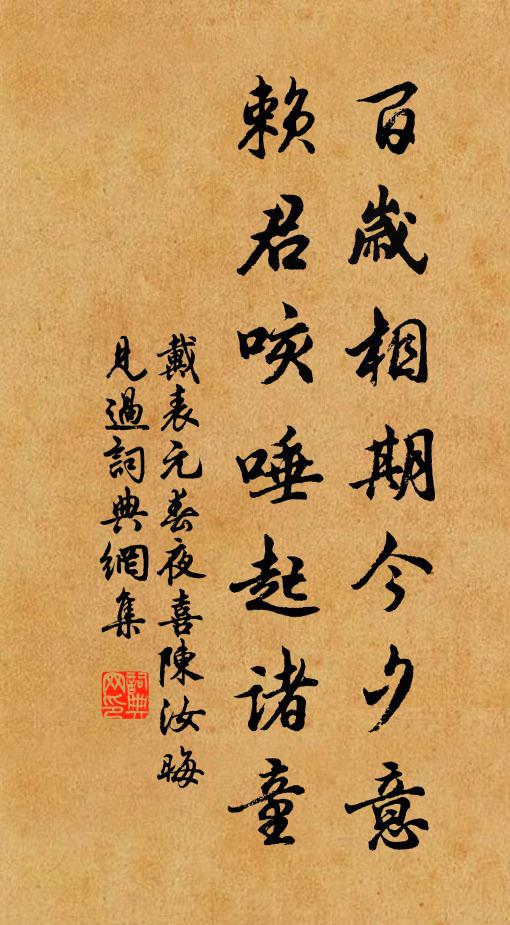 百歲相期今夕意
賴君咳唾起諸童
戴表元春夜喜陳汝晦
見過詞典網集
詞典
网印